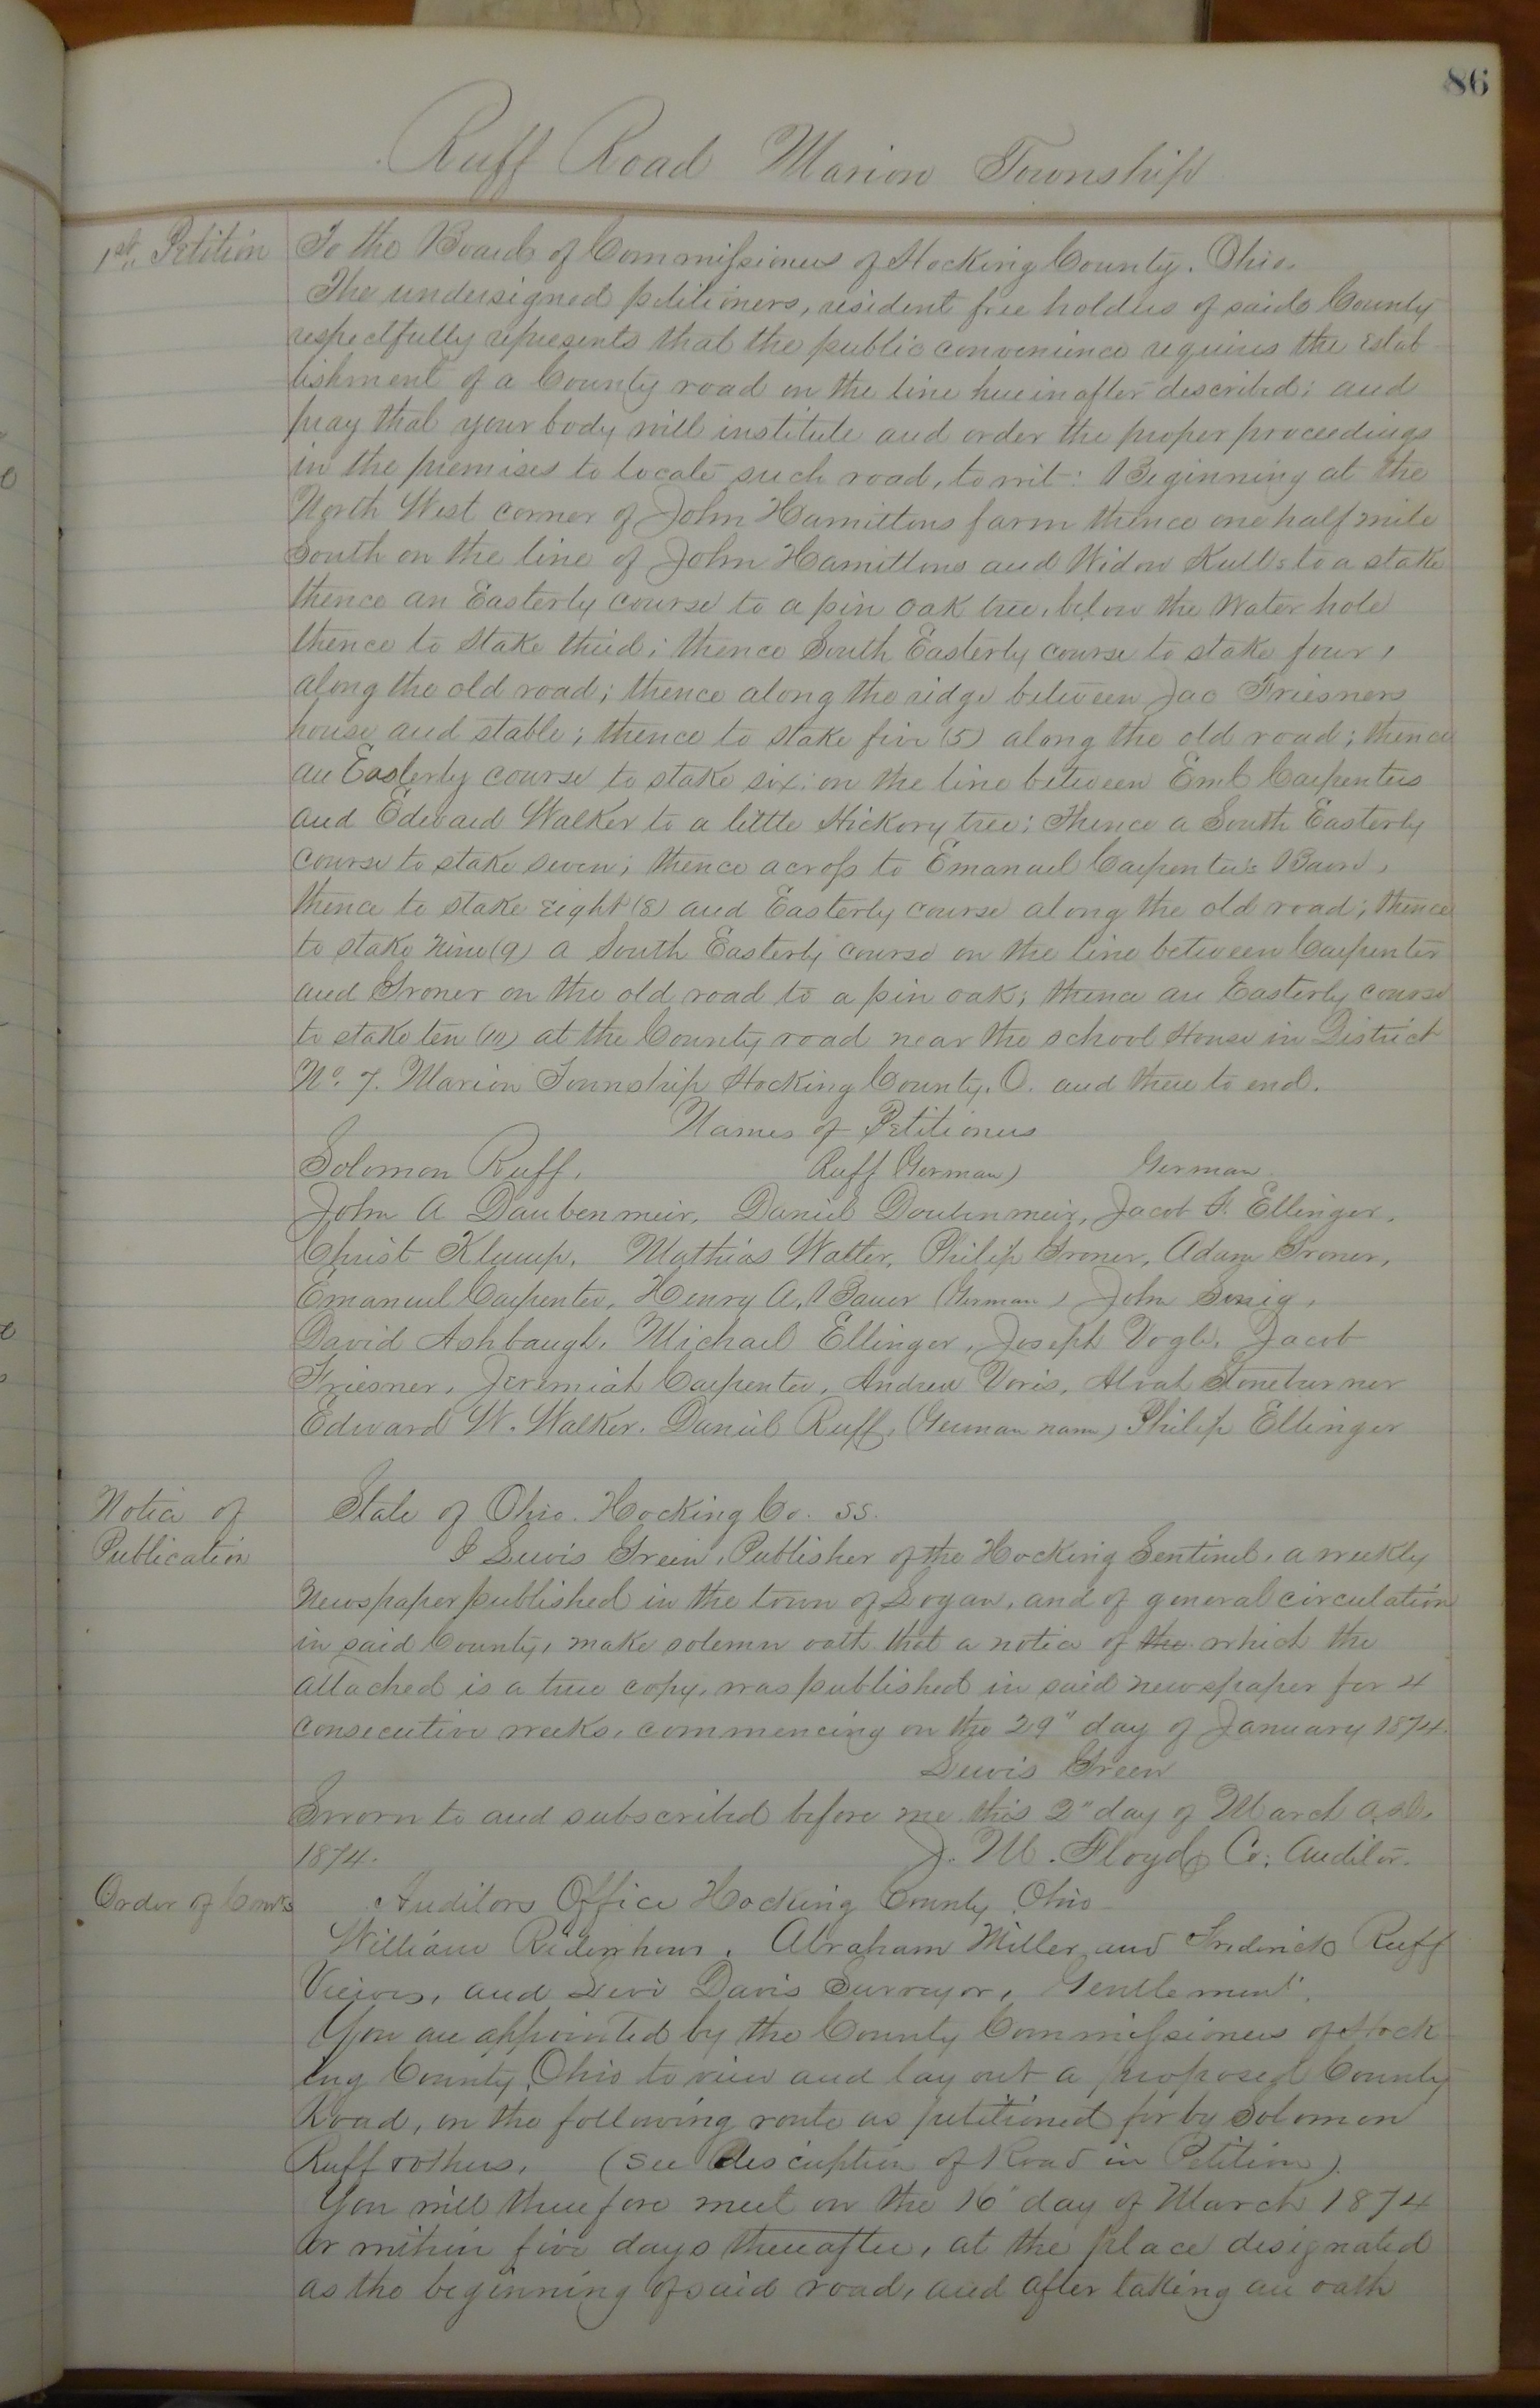 86
Ruff Road Marion Township
1st. Petition
To the Board of Commissioners of Hocking County. Ohio.
The undersigned petitioners, resident free holders of said County
respectfully represents that the public convenience requires the estab
lishment of a County road on the line hereinafter described; and
pray that your body will institute and order the proper proceedings
in the premises to locate such road, to wit: Beginning at the
North West corner of John Hamiltons farm thence one half mile
South on the line of John Hamiltons and Widow Kulls to a stake
thence an Easterly course to a pin oak tree, below the Water hole
thence to Stake third; thence South Easterly course to stake four,
along the old road; thence along the ridge between Jac Friesners
house and stable; thence to stake five (5) along the old road; thence
an Easterly course to stake six; on the line between Eml Carpenters
and Edward Walker to a little Hickory tree; Thence a South Easterly
course to stake seven; thence across to Emanuel Carpenter's Barn,
thence to stake eight (8) and Easterly course along the old road; thence
to stake Nine (9) a South Easterly course on the line between Carpenter
and Groner on the old road to a pin oak; thence an Easterly course
to stake ten (10) at the County road near the school House in District
No. 7. Marion Township Hocking County. O. and there to end.
Names of Petitioners
Solomon Ruff, Ruff (German) German
John A Daubenmeir, Daniel Doubenmeir, Jacob F. Ellinger,
Christ Klump, Mathias Walter, Philip Groner, Adam Groner,
Emanuel Carpenter, Henry A. Bauer (German) John
David Ashbaugh, Michael Ellinger, Joseph Vogle, Jacob
Friesner, Jeremiah Carpenter, Andrew Voris, Alvah Stoneburner
Edward W. Walker. Daniel Ruff, (German name) Philip Ellinger
Notice of
Publication
State of Ohio. Hocking Co. SS.
I Lewis Green, Publisher of the Hocking Sentinel, a weekly
Newspaper published in the town of Logan, and of general circulation
in said County, make solemn oath that a notice of the which the
attached is a true copy, was published in said newspaper for 4
consecutive weeks, commencing on the 29" day of January 1874.
Lewis Green
Sworn to and subscribed before me this 2" day of March A.D.
1874. J. M. Floyd Co. Auditor.
Order of Com'rs
Auditors Office Hocking County Ohio
William Ridenhour, Abraham Miller and Frederick Ruff
Viewers, and Levi Davis Surveyor, Gentlemen'.
You are appointed by the County Commissioners of Hock
ing County, Ohio to view and lay out a proposed County
Road, on the following route as petitioned for by Solomon
Ruff & others, (See description of Road in Petition).
You will therefore meet on the 16" day of March 1874
or within five days thereafter, at the place designated
as the beginning of said road, and after taking an oath